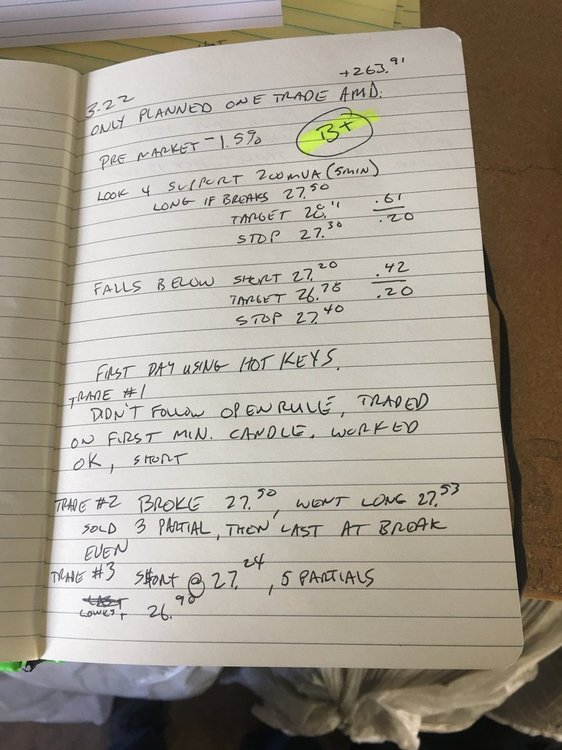 +263.91
3-22
ONLY PLANNED ONE TRADE AMD.
PRE MARKET -1.5%
B+
LOOK 4 SUPPORT 200MVA (5MIN)
LONG IF BREAKS 27.50
TARGET 28.11 .61/.20
STOP 27.30
FALLS BELOW SHORT 27.20 .42/.20
TARGET 26.78
STOP 27.40
FIRST DAY USING HOT KEYS.
TRADE #1
DIDN'T FOLLOW OPEN RULE, TRADED
ON FIRST MIN. CANDLE, WORKED
OK, SHORT
TRADE #2 BROKE 27.50, WENT LONG 27.53
SOLD 3 PARTIAL, THEN LAST AT BREAK
EVEN
TRADE #3 SHORT @ 27.24, 5 PARTIALS
LOWEST 26.90